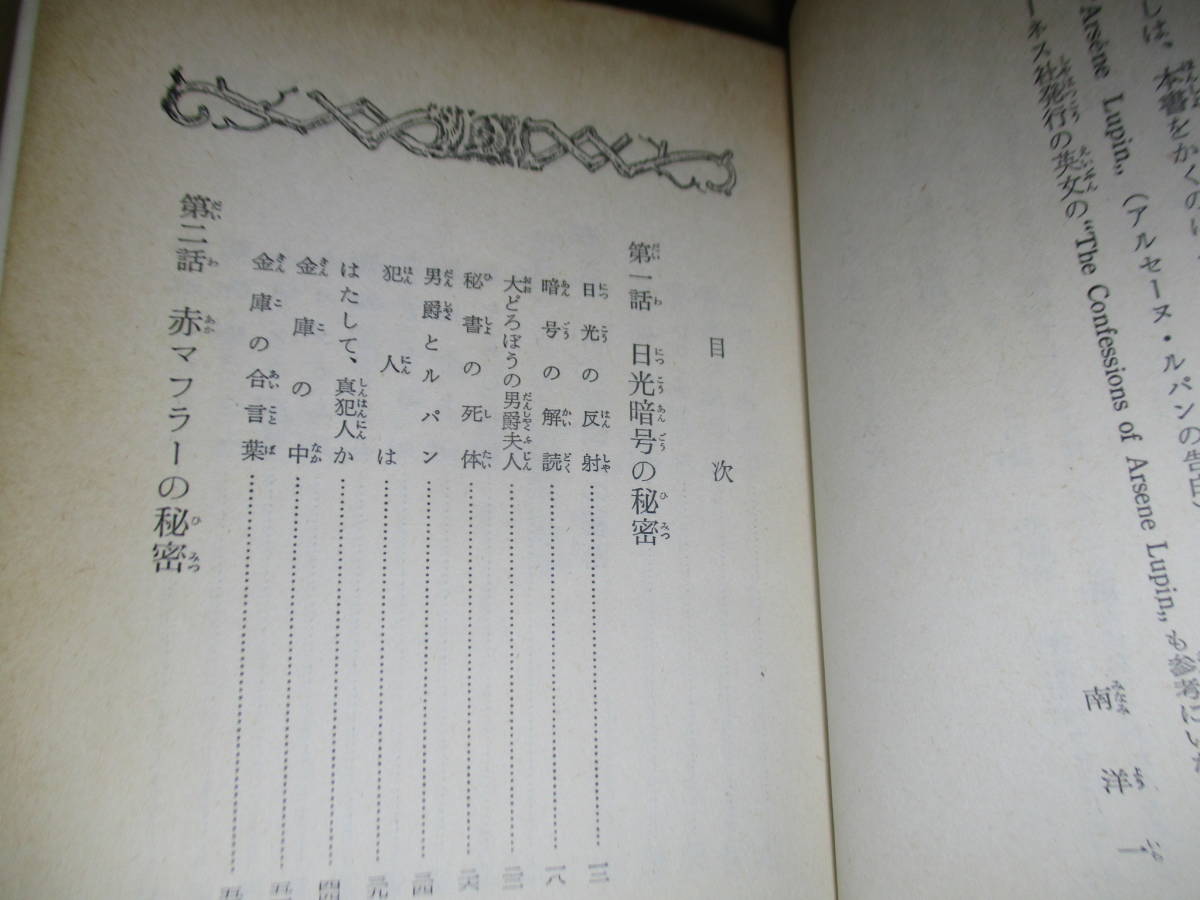 しは、本書をかくのに
Arsène Lupin„ (アルセーヌ・ルパンの告白)
ーネス社発行の英文の"The Confessions of Arsene Lupin„も参考にいた
南洋一
目次
第一話 日光暗号の秘密
日光の反射……一二
暗号の解読……一八
大どろぼうの男爵夫人……二二
秘書の死体……二六
男爵とルパン……三四
犯人は……三九
はたして、真犯人か……四四
金庫の中……五一
金庫の合言葉
第二話 赤マフラーの秘密